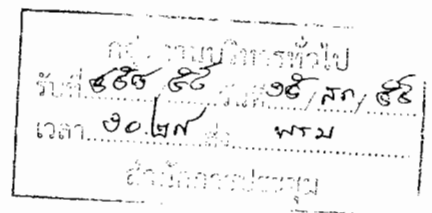 กลุ่มงานบริหารทั่วไป
รับที่ /๕๕ วันที่ /สค/ ๕๕
เวลา ๑๐.๒๗ ส่ง พรม
สำนักการประชุม